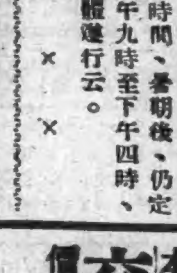 時間、暑期後、仍定
午九時至下午四時、
體遵行云。
× ×